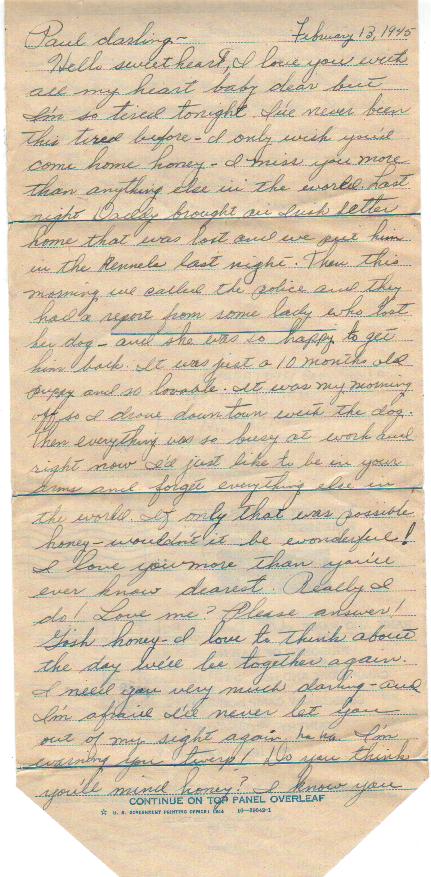 February 13, 1945
Paul darling-
Hello sweetheart, I love you with
all my heart baby dear but
I'm so tired tonight. I've never been
this tired before - I only wish you'd
come home honey - I miss you more
than anything else in the world. Last
night Daddy brought an Irish Setter
home that was lost and we put him
in the kennels last night. Then this
morning we called the police and they
had a report from some lady who lost
her dog - and she was so happy to get
him back. It was just a 10 months old
puppy and so lovable. It was my morning
off so I drove downtown with the dog.
Then everything was so busy at work and
right now I'd just like to be in your
arms and forget everything else in
the world. If only that was possible
honey - wouldn't it be wonderful!
I love you more than you'll
ever know dearest. Really I
do! Love me? Please answer!
Gosh honey - I love to think about
the day we'll be together again.
I need you very much darling - and
I'm afraid I'll never let you
out of my sight again ha ha. I'm
warning you twerp! Do you think
you'll mind honey? I know you
CONTINUE ON TOP PANEL OVERLEAF
☆ U. S. GOVERNMENT PRINTING OFFICE: 1944 16-39942-1